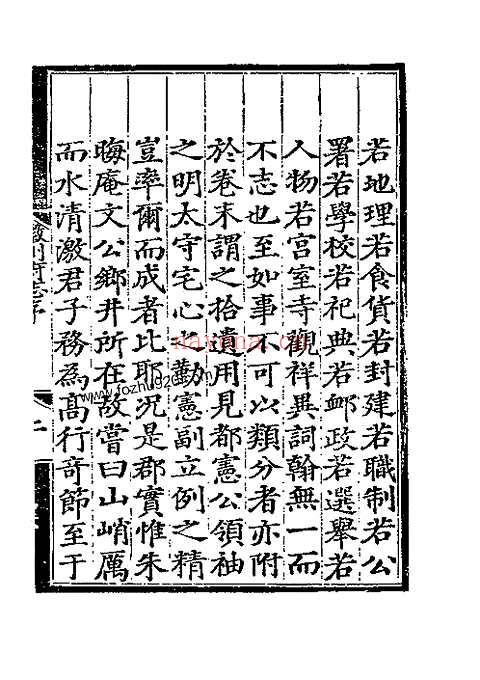 若地理若食貨若封建若職制若公
署若學校若祀典若䘏政若選舉若
人物若宮室寺觀祥異詞翰無一而
不志也至如事不可以類分者亦附
於卷末謂之拾遺用見都憲公領袖
之明太守宅心之勤憲副立例之精
豈率爾而成者比耶況是郡實惟朱
晦庵文公鄉井所在故嘗曰山峭厲
而水清激君子務為髙行奇節至于
府志序